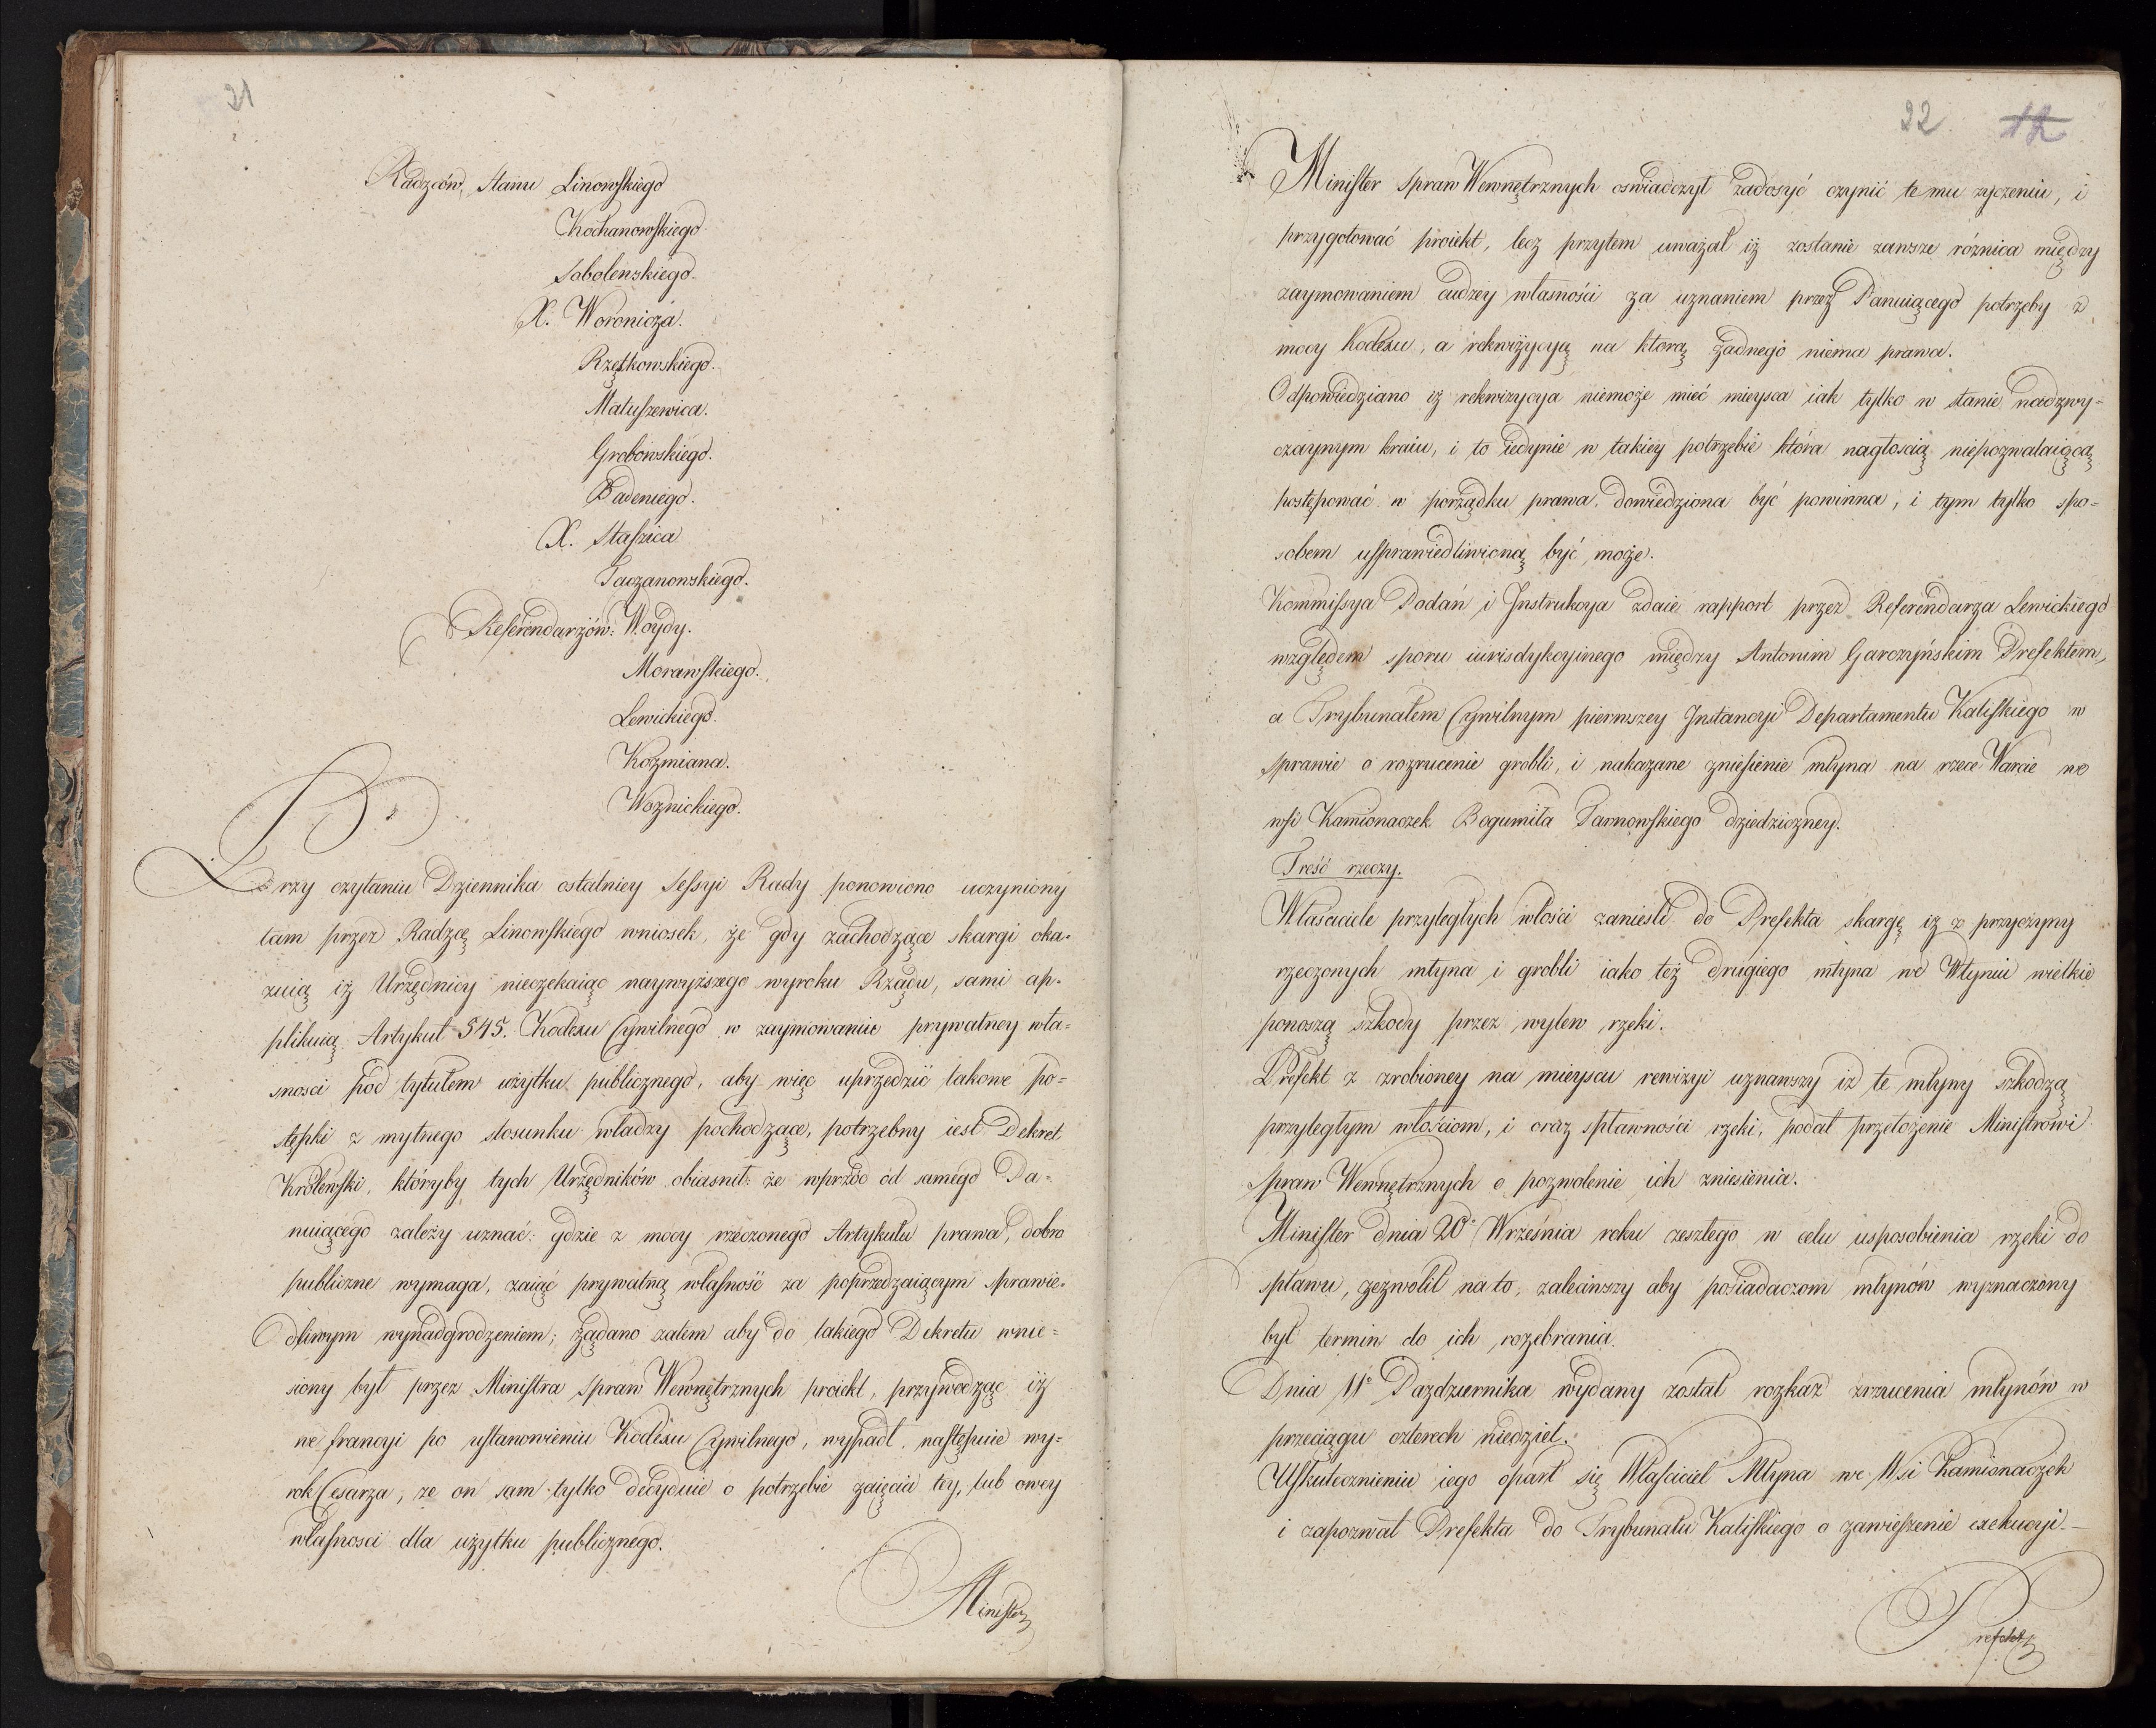 21
Radzców, Stanu Linowskiego
Kochanowskiego
Sobolewskiego.
X. Woronicza.
Rzętkowskiego.
Matuszewica.
Grabowskiego.
Badeniego.
X. Staszica
Taczanowskiego.
Referendarzów: Woydy.
Morawskiego.
Lewickiego.
Kozmiana.
Woznickiego.
Przy czytaniu Dziennika ostatniey Sessyi Rady ponowiono uczyniony
tam przez Radzcę Linowskiego wniosek, że gdy zachodzące skargi oka-
zuią iż Urzędnicy nieczekaiąc naywyższego wyroku Rządu, sami ap-
plikuią Artykuł 545. Kodexu Cywilnego w zaymowaniu prywatney wła-
snosci pod tytułem użytku publicznego, aby więc uprzedzić takowe po-
stępki z mylnego stosunku władzy pochodzące, potrzebny iest Dekret
Krolewski, któryby tych Urzędników obiasnił: że wprzód od samego Pa-
nuiącego zależy uznać: gdzie z mocy rzeczonego Artykułu prawa, dobro
publiczne wymaga, zaiąć prywatną własność za poprzedzaiącym sprawie-
dliwym wynadgrodzeniem; żądano zatem aby do takiego Dekretu wnie-
siony był przez Ministra Spraw Wewnętrznych proiekt, przywodząc iż
we francyi po ustanowieniu Kodexu Cywilnego, wypadł następnie wy-
rok Cesarza, ze on sam tylko decyduie o potrzebie zaięcia tey, lub owey
własnosci dla użytku publicznego.
Minister
22 12
Minister Spraw Wewnętrznych oswiadczył zadosyć czynić temu zyczeniu, i
przygotować proiekt, lecz przytem uważał iż zostanie zawsze różnica między
zaymowaniem cudzey własności za uznaniem przez Panuiącego potrzeby z
mocy Kodexu, a rekwizycyą na ktorą żadnego niema prawa.
Odpowiedziano iż rekwizycya niemoże mieć mieysca iak tylko w stanie nadzwy-
czaynym kraiu, i to iedynie w takiey potrzebie która nagłoscią niepozwalaiącą
postępować w porządku prawa, dowiedziona być powinna, i tym tylko spo-
sobem usprawiedliwioną być może.
Kommissya Podań i Instrukcya zdaie rapport przez Referendarza Lewickiego
względem sporu iurisdykcyinego między Antonim Garczyńskim Prefektem,
a Trybunałem Cywilnym pierwszey Instancyi Departamentu Kaliskiego w
sprawie o rozrucenie grobli, i nakazane zniesienie młyna na rzece Warcie we
wsi Kamionaczek Bogumiła Tarnowskiego dziedziczney.
Treść rzeczy.
Właściciele przyległych włości zanieśli do Prefekta skargę iż z przyczyny
rzeczonych młyna i grobli iako też drugiego młyna we Wtyniu wielkie
ponoszą szkody przez wylew rzeki.
Prefekt z zrobioney na mieyscu rewizyi uznawszy iż te młyny szkodzą
przyległym włościom, i oraz spławności rzeki, podał przełożenie Ministrowi
Spraw Wewnętrznych o pozwolenie ich zniesienia.
Minister dnia 20o Września roku zeszłego w celu usposobienia rzeki do
spławu, zezwolił na to, zaleciwszy aby posiadaczom młynów wyznaczony
był termin do ich rozebrania.
Dnia 11o Pazdziernika wydany został rozkaz zrzucenia młynów w
przeciągu czterech niedziel.
Uskutecznieniu iego oparł się Właściciel Młyna we Wsi Kamionaczek
i zapozwał Prefekta do Trybunału Kaliskiego o zawieszenie exekucyi.—
Prefekt